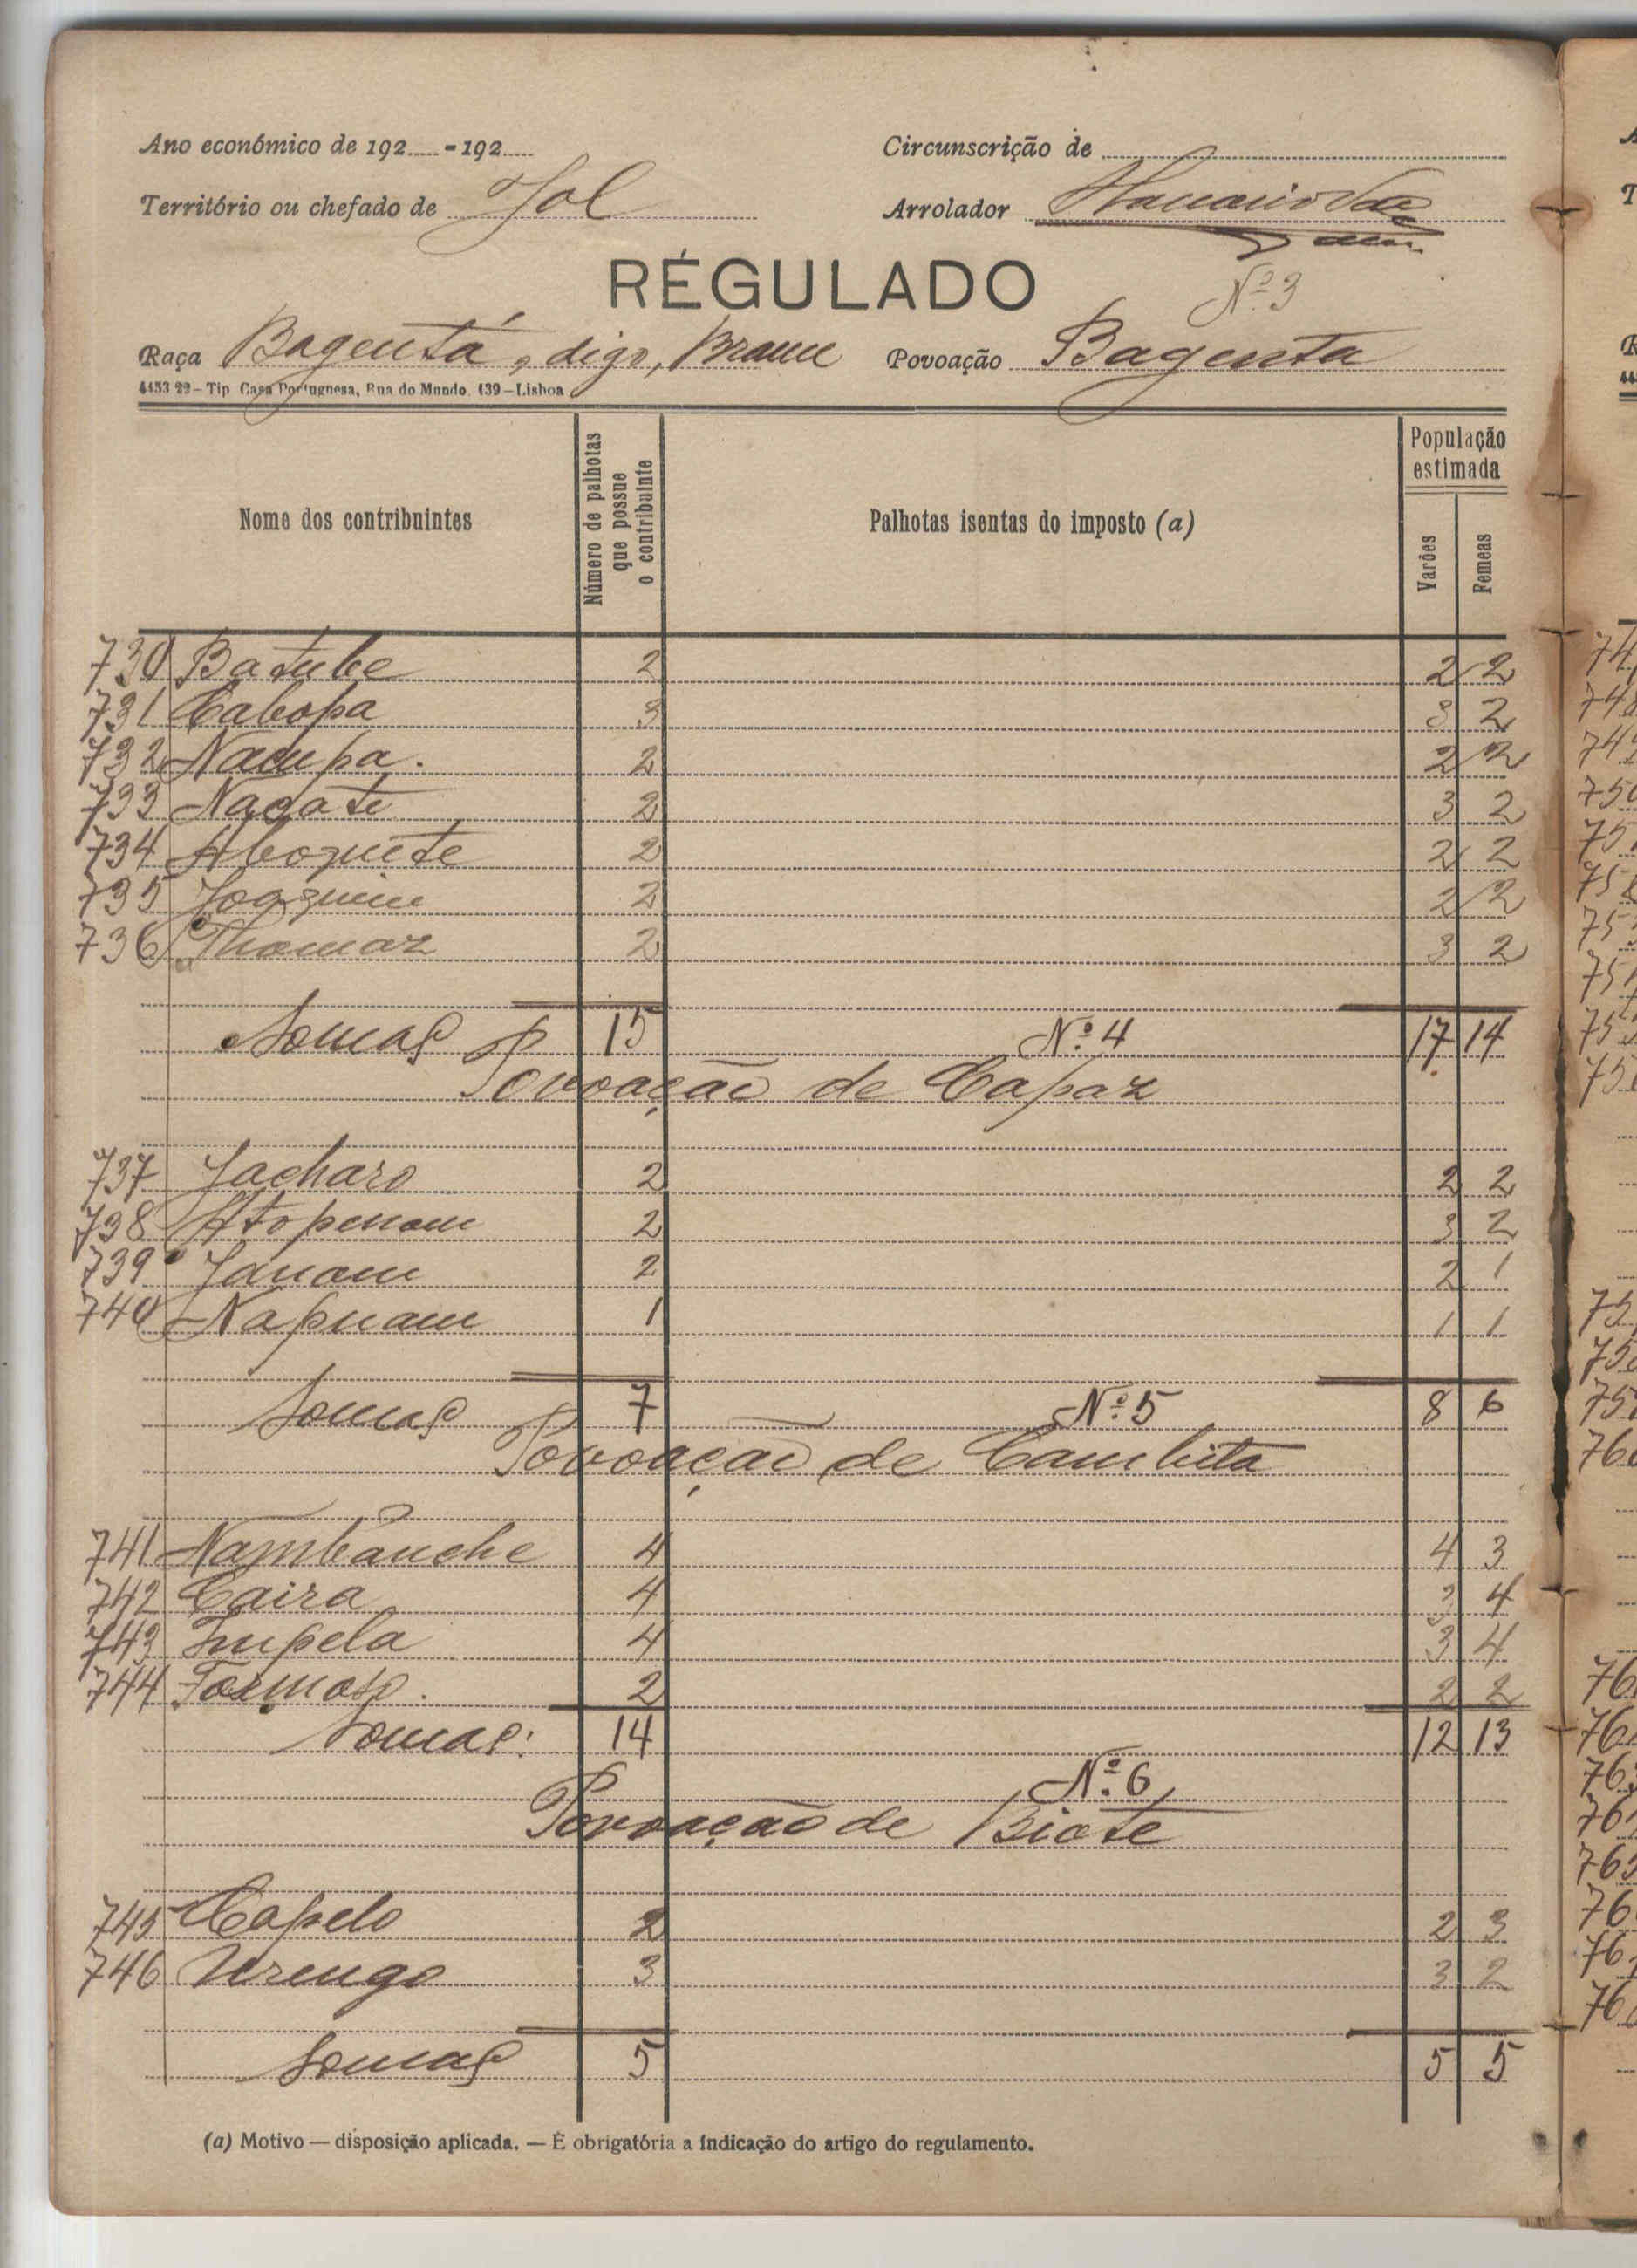 Ano económico de 192..... - 192..... Circunscrição de
Território ou chefado de Jol Arrolador
RÉGULADO Nº 3
Raça Bagentá, digo, Brame Povoação Bagenta
4453 22 – Tip. Casa Portuguesa, Rua do Mundo, 139 – Lisboa
Nome dos contribuintes Número de palhotas que possue o contribuinte Palhotas isentas do imposto (a) População estimada Varões Femeas
730 Batube 2 2 2
731 Cabopa 3 3 2
732 Nacupa. 2 2 2
733 Nagate 2 3 2
734 Aboquete 2 2 2
735 Joaquim 2 2 2
736 Thomaz 2 3 2
Somas 15 Nº 4 17 14
Povoação de Capaz
737 Jacharo 2 2 2
738 Atopenam 2 3 2
739 Janam 2 2 1
740 Napnam 1 1 1
Somas 7 Nº 5 8 6
Povoação de Cambita
741 Nambanche 4 4 3
742 Caira 4 3 4
743 Impela 4 3 4
744 Formoso. 2 2 2
Somas: 14 12 13
Nº 6
Povoação de Biote
745 Capelo 2 2 3
746 Urengo 3 3 2
Somas 5 5 5
(a) Motivo — disposição aplicada. — É obrigatória a indicação do artigo do regulamento.